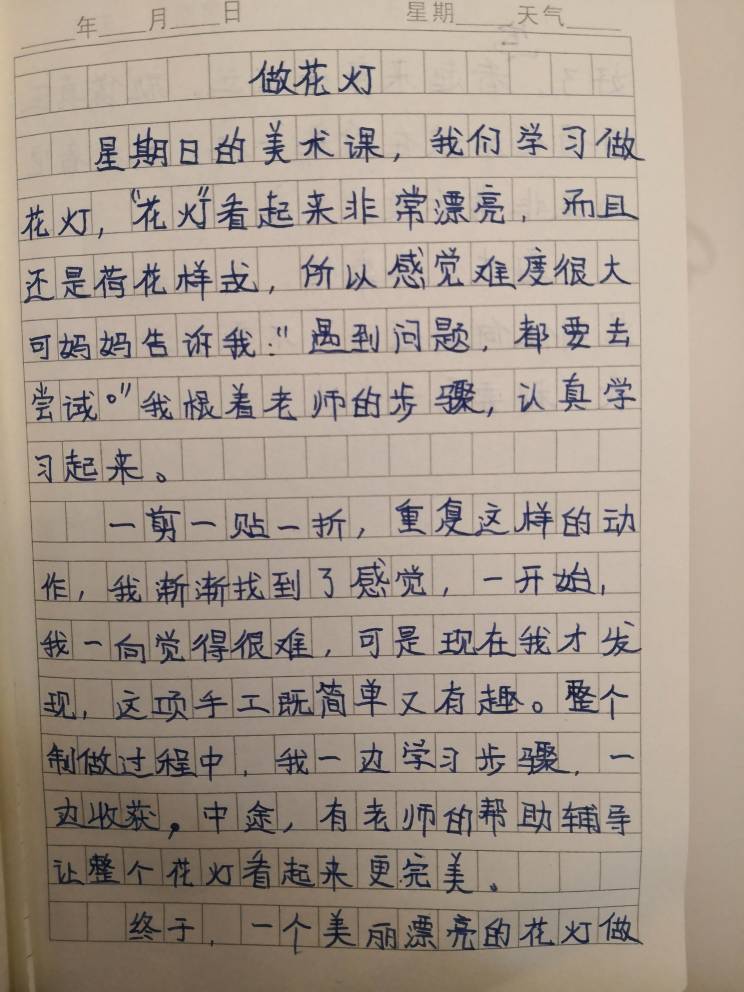 年 月 日 星期 天气
做花灯
星期日的美术课，我们学习做
花灯，“花灯”看起来非常漂亮，而且
还是荷花样式，所以感觉难度很大
可妈妈告诉我：“遇到问题，都要去
尝试。”我根着老师的步骤，认真学
习起来。
一剪一贴一折，重复这样的动
作，我渐渐找到了感觉，一开始，
我一向觉得很难，可是现在我才发
现，这项手工既简单又有趣。整个
制做过程中，我一边学习步骤，一
边收获，中途，有老师的帮助辅导
让整个花灯看起来更完美。
终于，一个美丽漂亮的花灯做